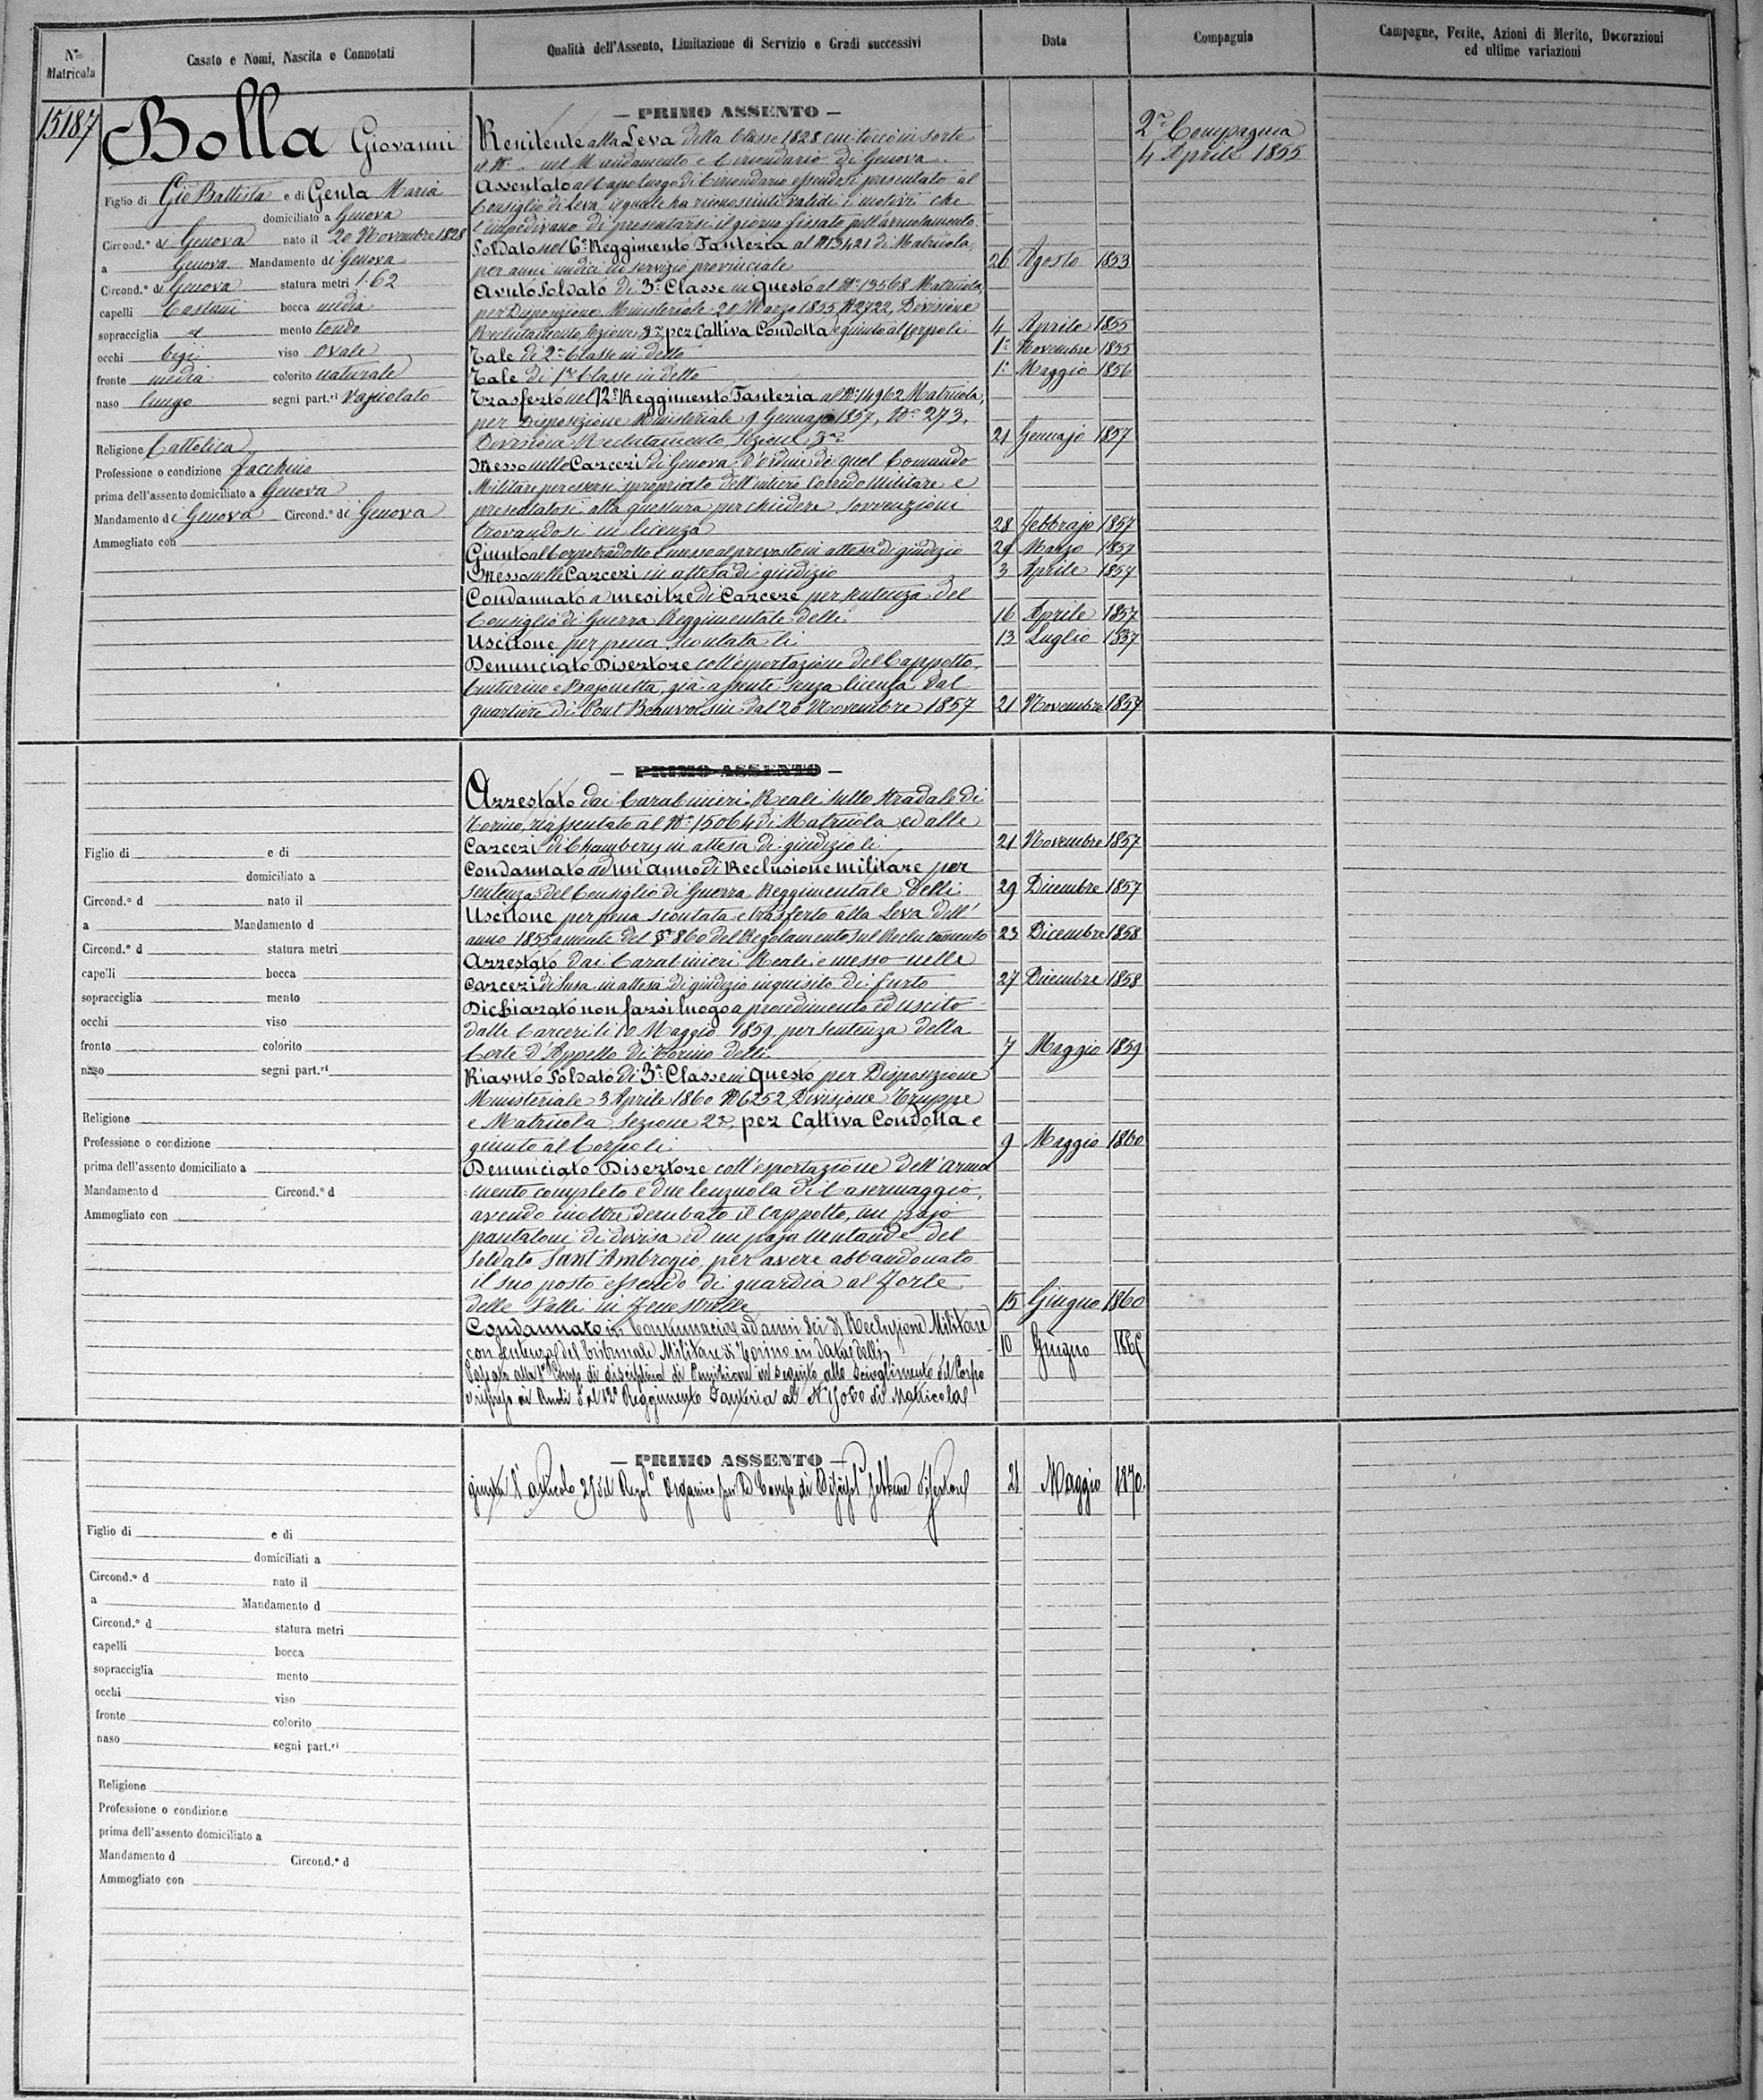 Nº Matricola
Casato e Nomi, Nascita e Connotati
Qualità dell'Assento, Limitazione di Servizio e Gradi successivi
Data
Compagnia
Campagne, Ferite, Azioni di Merito, Decorazioni
ed ultime variazioni
15187
Bolla Giovanni
Figlio di Gio Battista e di Genta Maria
domiciliato a Genova
Circond.º di Genova nato il 20 Novembre 1828
a Genova Mandamento di Genova
Circond.º di Genova statura metri 1.62
capelli Castani bocca media
sopracciglia id mento tondo
occhi bigi viso ovale
fronte media colorito naturale
naso lungo segni part.ri vajolato
Religione Cattolica
Professione o condizione facchino
prima dell'assento domiciliato a Genova
Mandamento di Genova Circond.º di Genova
Ammogliato con
— PRIMO ASSENTO —
Renitente alla Leva della Classe 1828 cui toccò in sorte
il Nº nel Mandamento e Circondario di Genova.
Assentato al Capoluogo di Circondario essendosi presentato al
Consiglio di Leva il quale ha riconosciuti validi i motivi che
l'impedivano di presentarsi il giorno fissato pell'arruolamento.
Soldato nel 6º Reggimento Fanteria al Nº 13421 di Matricola,
per anni undici di servizio provinciale 26 Agosto 1853
Avuto Soldato di 3ª Classe in questo al Nº 13568 Matricola,
per Disposizione Ministeriale 20 Marzo 1855 Nº 2722, Divisione
Reclutamento, Sezione 3ª, per Cattiva Condotta e giunto al Corpo li 4 Aprile 1855
Tale di 2ª Classe in detto 1º Novembre 1855
Tale di 1ª Classe in detto 1º Maggio 1856
Trasferto nel 12º Reggimento Fanteria al Nº 14962 Matricola,
per Disposizione Ministeriale 9 Gennajo 1857, Nº 273,
Divisione Reclutamento Sezione 3ª 21 Gennajo 1857
Messo nelle Carceri di Genova d'ordine di quel Comando
Militare per essersi spropriato dell'intiero Corredo Militare e
presentatosi alla questura per chiedere sovvenzioni
trovandosi in licenza 28 Febbrajo 1857
Giunto al Corpo tradotto e messo al prevosto in attesa di giudizio 29 Marzo 1857
Messo nelle Carceri in attesa di giudizio 3 Aprile 1857
Condannato a mesi tre di Carcere per sentenza del
Consiglio di Guerra Reggimentale delli 16 Aprile 1857
Uscitone per pena scontata li 13 Luglio 1857
Denunciato Disertore coll'esportazione del Cappotto,
Cinturino e Bajonetta, già assente senza licenza dal
quartiere di Pont Beauvoisin dal 20 Novembre 1857 21 Novembre 1857
2ª Compagnia
4 Aprile 1855
— PRIMO ASSENTO —
Arrestato dai Carabinieri Reali sullo stradale di
Torino, riassentato al Nº 15064 di Matricola ed alle
Carceri di Chambery in attesa di giudizio li 21 Novembre 1857
Condannato ad un'anno di Reclusione militare per
sentenza del Consiglio di Guerra Reggimentale delli 29 Dicembre 1857
Uscitone per pena scontata e trasferto alla Leva dell'
anno 1855 a mente del § 860 del Regolamento sul Reclutamento 23 Dicembre 1858
Arrestato dai Carabinieri Reali e messo nelle
Carceri di Susa in attesa di giudizio inquisito di furto 27 Dicembre 1858
Dichiarato non farsi luogo a procedimento ed uscito
dalle Carceri li 10 Maggio 1859, per sentenza della
Corte d'Appello di Torino delli 7 Maggio 1859
Riavuto Soldato di 3ª Classe in questo per Disposizione
Ministeriale 3 Aprile 1860 Nº 6252, Divisione Truppe
e Matricola, Sezione 2ª, per Cattiva Condotta e
giunto al Corpo li 9 Maggio 1860
Denunciato Disertore coll'esportazione dell'arma
mento completo e due lenzuola di Casermaggio,
avendo inoltre derubato il cappotto, un pajo
pantaloni di divisa ed un pajo mutande del
Soldato Sant'Ambrogio, per avere abbandonato
il suo posto essendo di guardia al Forte
delle Valli in Fenestrelle 15 Giugno 1860
Condannato in Contumacia ad anni sei di Reclusione Militare
con Sentenza del Tribunale Militare di Torino in data delli 10 Giugno
Passato alla Comp. di disciplina di Punizione in seguito allo scioglimento del Corpo
e ripreso ai Ruoli del 12º Reggimento Fanteria al Nº di Matricola
Figlio di e di
domiciliato a
Circond.º d nato il
a Mandamento d
Circond.º d statura metri
capelli bocca
sopracciglia mento
occhi viso
fronte colorito
naso segni part.ri
Religione
Professione o condizione
prima dell'assento domiciliato a
Mandamento d Circond.º d
Ammogliato con
— PRIMO ASSENTO —
giusta l'articolo Organico 21 Maggio 1870.
Figlio di e di
domiciliati a
Circond.º d nato il
a Mandamento d
Circond.º d statura metri
capelli bocca
sopracciglia mento
occhi viso
fronte colorito
naso segni part.ri
Religione
Professione o condizione
prima dell'assento domiciliato a
Mandamento d Circond.º d
Ammogliato con